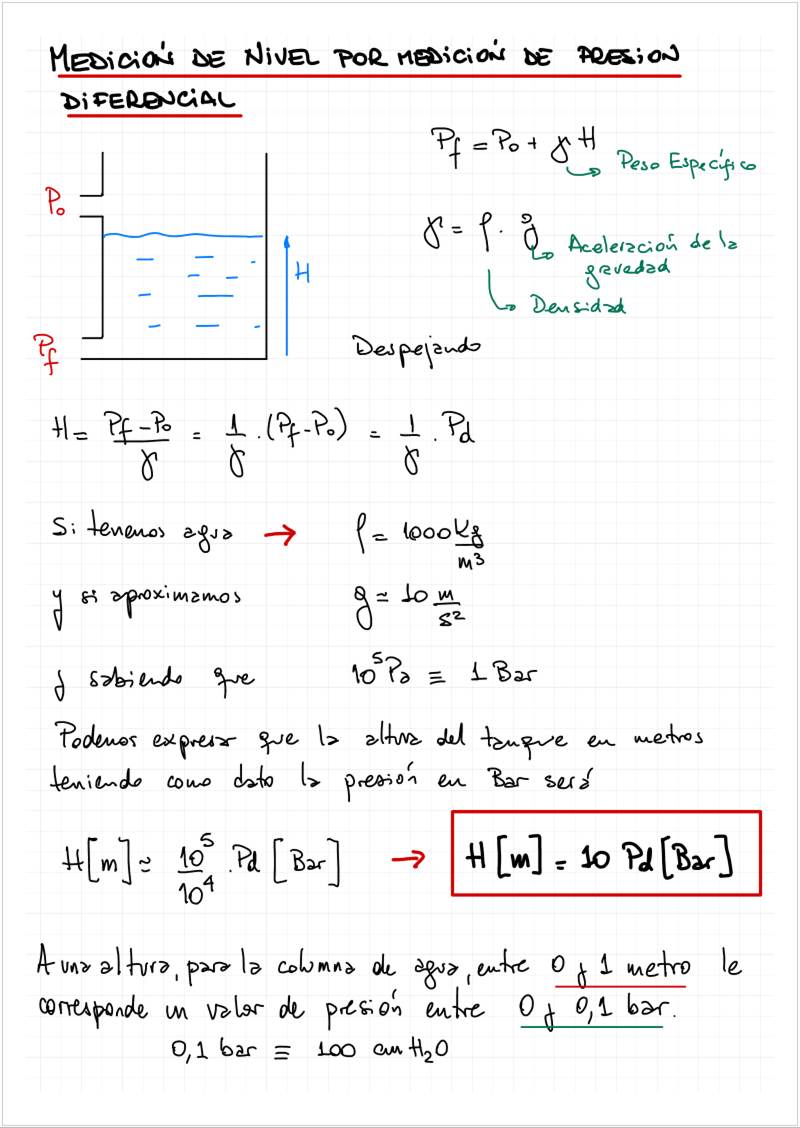 MEDICIÓN DE NIVEL POR MEDICIÓN DE PRESIÓN
DIFERENCIAL
Pf = Po + γ H
Peso Específico
Po
γ = ρ . g
Aceleración de la
gravedad
H
Densidad
Pf
Despejando
H = (Pf - Po)/γ = 1/γ . (Pf - Po) = 1/γ . Pd
Si tenemos agua → ρ = 1000 Kg/m³
y si aproximamos g ≈ 10 m/s²
y sabiendo que 10⁵ Pa ≡ 1 Bar
Podemos expresar que la altura del tanque en metros
teniendo como dato la presión en Bar será
H[m] ≈ 10⁵/10⁴ . Pd [Bar] → H[m] = 10 Pd [Bar]
A una altura, para la columna de agua, entre 0 y 1 metro le
corresponde un valor de presión entre 0 y 0,1 bar.
0,1 bar ≡ 100 cm H₂O